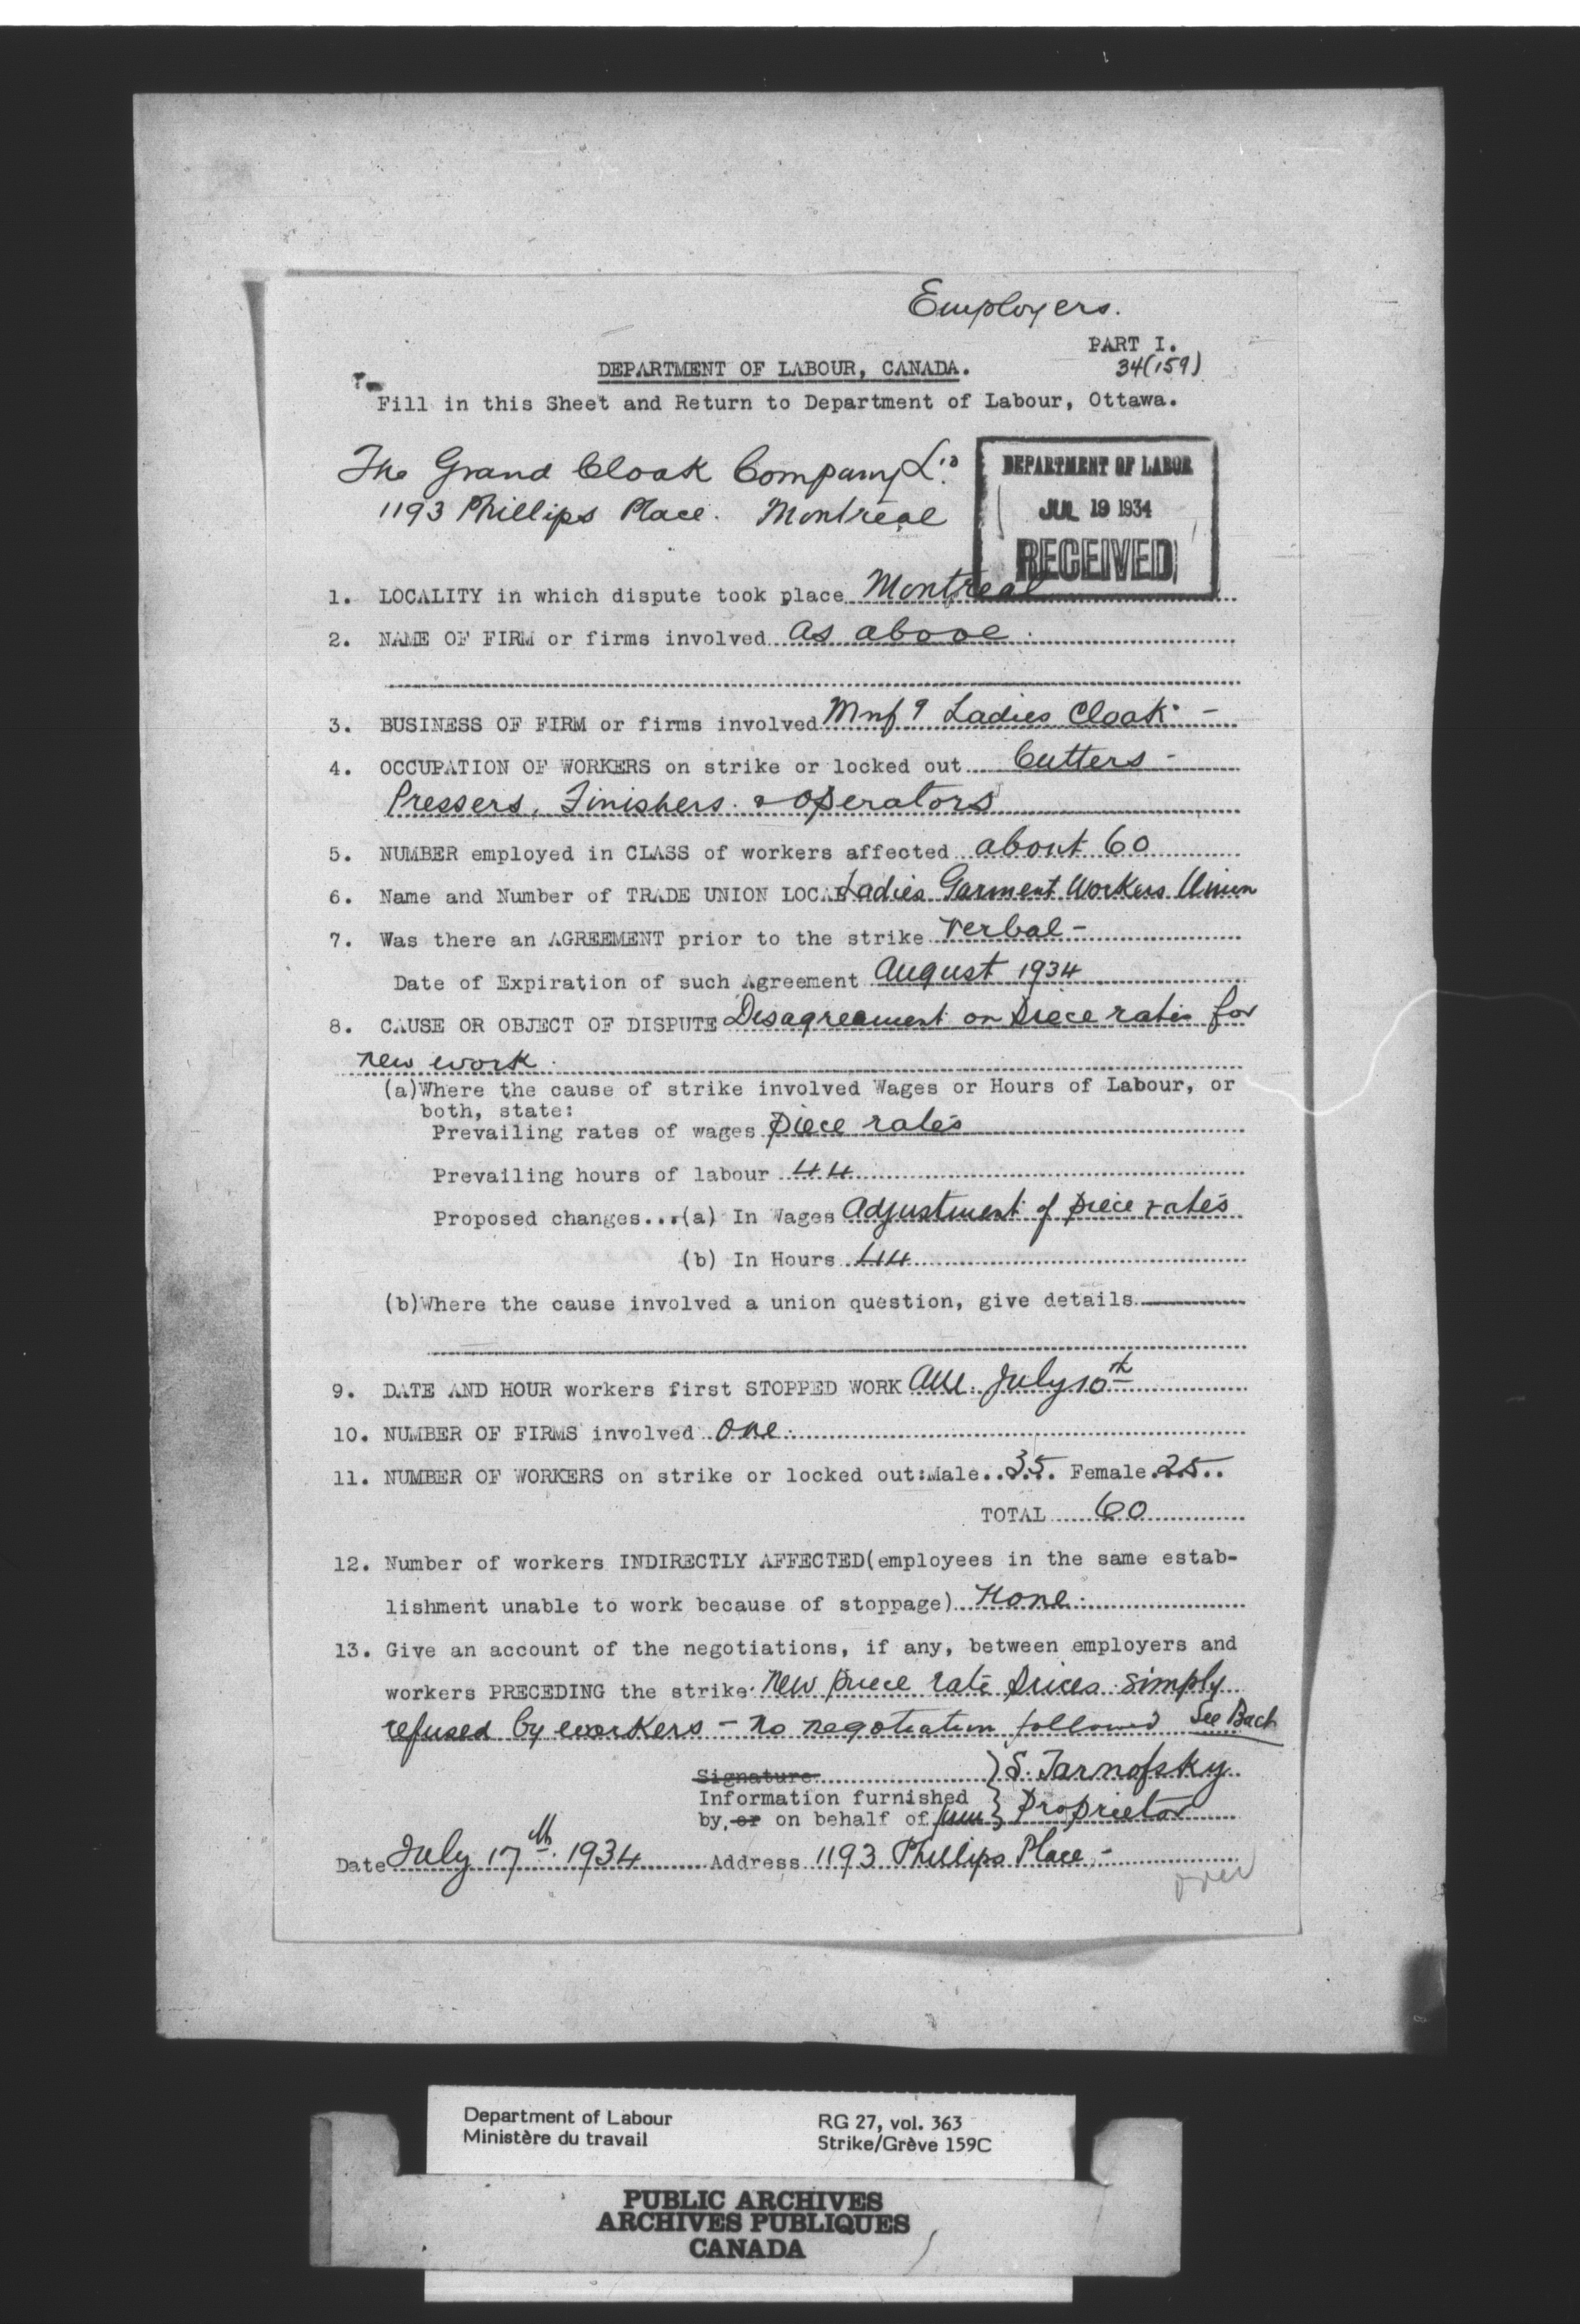 Employers.
PART I.
34(159)
DEPARTMENT OF LABOUR, CANADA.
Fill in this Sheet and Return to Department of Labour, Ottawa.
The Grand Cloak Company Ltd
1193 Phillips Place. Montreal
DEPARTMENT OF LABOR
JUL 19 1934
RECEIVED
1. LOCALITY in which dispute took place Montreal
2. NAME OF FIRM or firms involved as above.
3. BUSINESS OF FIRM or firms involved Mnfg Ladies Cloak -
4. OCCUPATION OF WORKERS on strike or locked out Cutters -
Pressers, Finishers. & operators
5. NUMBER employed in CLASS of workers affected about 60
6. Name and Number of TRADE UNION LOCAL Ladies Garment Workers Union
7. Was there an AGREEMENT prior to the strike Verbal -
Date of Expiration of such Agreement August 1934
8. CAUSE OR OBJECT OF DISPUTE Disagreement on piece rates for
new work.
(a)Where the cause of strike involved Wages or Hours of Labour, or
both, state:
Prevailing rates of wages piece rates
Prevailing hours of labour 44
Proposed changes...(a) In Wages adjustment of piece rates
(b) In Hours 44
(b)Where the cause involved a union question, give details
9. DATE AND HOUR workers first STOPPED WORK July 10th
10. NUMBER OF FIRMS involved one.
11. NUMBER OF WORKERS on strike or locked out:Male 35 Female 25
TOTAL 60
12. Number of workers INDIRECTLY AFFECTED(employees in the same estab-
lishment unable to work because of stoppage) None.
13. Give an account of the negotiations, if any, between employers and
workers PRECEDING the strike. New piece rate prices simply
refused by workers - no negotiation followed See Back
Signature } S. Tarnofsky
Information furnished
by, or on behalf of } Proprietor
Date July 17th. 1934 Address 1193 Phillips Place -
over
Department of Labour RG 27, vol. 363
Ministère du travail Strike/Grève 159C
PUBLIC ARCHIVES
ARCHIVES PUBLIQUES
CANADA